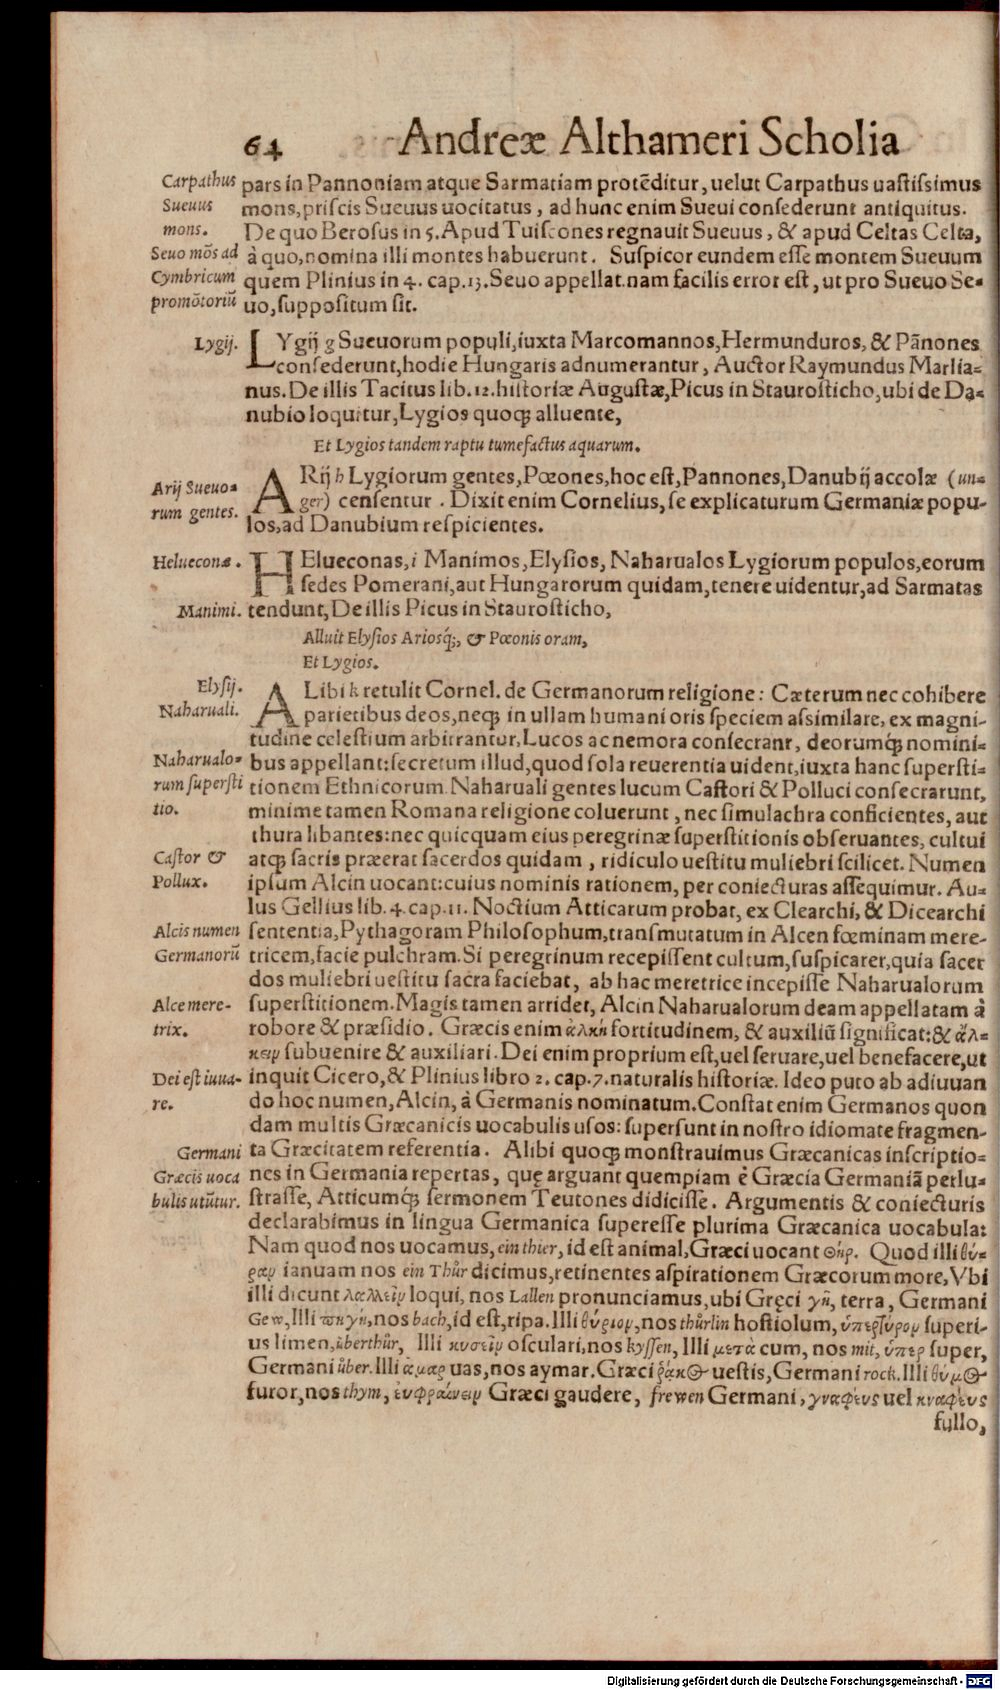 64 Andreæ Althameri Scholia
Carpathus
Sueuus
mons.
Seuo mõs ad
Cymbricum
promõtoriũ
pars in Pannoniam atque Sarmatiam protẽditur, uelut Carpathus uastissimus
mons, priscis Sueuus uocitatus, ad hunc enim Sueui consederunt antiquitus.
De quo Berosus in 5. Apud Tuiscones regnauit Sueuus, & apud Celtas Celta,
à quo, nomina illi montes habuerunt. Suspicor eundem esse montem Sueuum
quem Plinius in 4. cap. 13. Seuo appellat. nam facilis error est, ut pro Sueuo Se-
uo, suppositum sit.
Lygij.
LYgij g Sueuorum populi, iuxta Marcomannos, Hermunduros, & Pãnones
consederunt, hodie Hungaris adnumerantur, Auctor Raymundus Marlia-
nus. De illis Tacitus lib. 12. historiæ Augustæ, Picus in Staurosticho, ubi de Da-
nubio loquitur, Lygios quoq; alluente,
Et Lygios tandem raptu tumefactus aquarum.
Arij Sueuo-
rum gentes.
ARij h Lygiorum gentes, Pœones, hoc est, Pannones, Danubij accolæ (un-
ger) censentur. Dixit enim Cornelius, se explicaturum Germaniæ popu-
los, ad Danubium respicientes.
Helueconæ.
Manimi.
HElueconas, i Manimos, Elysios, Naharualos Lygiorum populos, eorum
sedes Pomerani, aut Hungarorum quidam, tenere uidentur, ad Sarmatas
tendunt, De illis Picus in Staurosticho,
Alluit Elysios Ariosq́;, & Pœonis oram,
Et Lygios.
Elysij.
Naharuali.
Naharualo-
rum supersti
tio.
Castor &
Pollux.
Alcis numen
Germanorũ
Alce mere-
trix.
Dei est iuua-
re.
Germani
Græcis uoca
bulis utũtur.
ALibi k retulit Cornel. de Germanorum religione: Cæterum nec cohibere
parietibus deos, neq; in ullam humani oris speciem assimilare, ex magni-
tudine celestium arbitrantur, Lucos ac nemora consecrant, deorumq́; nomini-
bus appellant: secretum illud, quod sola reuerentia uident, iuxta hanc supersti-
tionem Ethnicorum Naharuali gentes lucum Castori & Polluci consecrarunt,
minime tamen Romana religione coluerunt, nec simulachra conficientes, aut
thura libantes: nec quicquam eius peregrinæ superstitionis obseruantes, cultui
atq; sacris præerat sacerdos quidam, ridiculo uestitu muliebri scilicet. Numen
ipsum Alcin uocant: cuius nominis rationem, per coniecturas assequimur. Au-
lus Gellius lib. 4. cap. 11. Noctium Atticarum probat, ex Clearchi, & Dicearchi
sententia, Pythagoram Philosophum, transmutatum in Alcen fœminam mere-
tricem, facie pulchram. Si peregrinum recepissent cultum, suspicarer, quia sacer
dos muliebri uestitu sacra faciebat, ab hac meretrice incepisse Naharualorum
superstitionem. Magis tamen arridet, Alcin Naharualorum deam appellatam à
robore & præsidio. Græcis enim ἀλκὴ fortitudinem, & auxiliũ significat: & ἄλ-
κειν subuenire & auxiliari. Dei enim proprium est, uel seruare, uel benefacere, ut
inquit Cicero, & Plinius libro 2. cap. 7. naturalis historiæ. Ideo puto ab adiuuan
do hoc numen, Alcin, à Germanis nominatum. Constat enim Germanos quon
dam multis Græcanicis uocabulis usos: supersunt in nostro idiomate fragmen-
ta Græcitatem referentia. Alibi quoq; monstrauimus Græcanicas inscriptio-
nes in Germania repertas, quę arguant quempiam è Græcia Germaniã perlu-
strasse, Atticumq́; sermonem Teutones didicisse. Argumentis & coniecturis
declarabimus in lingua Germanica superesse plurima Græcanica uocabula:
Nam quod nos uocamus, ein thier, id est animal, Græci uocant θήρ. Quod illi θύ-
ραν ianuam nos ein Thůr dicimus, retinentes aspirationem Græcorum more, Vbi
illi dicunt λαλλεῖν loqui, nos Lallen pronunciamus, ubi Gręci γῆ, terra, Germani
Gew, Illi πηγή, nos bach, id est, ripa. Illi θύριον, nos thůrlin hostiolum, ὑπερθύρον superi-
us limen, überthůr, Illi κυσεῖν osculari, nos kyssen, Illi μετὰ cum, nos mit, ὑπερ super,
Germani über. Illi ἀμαρ uas, nos aymar. Græci ῥάκος uestis, Germani rock. Illi θύμος
furor, nos thym, ἐυφραίνειν Græci gaudere, frewen Germani, γναφεὺς uel κναφεὺς
fullo,
Digitalisierung gefördert durch die Deutsche Forschungsgemeinschaft - DFG